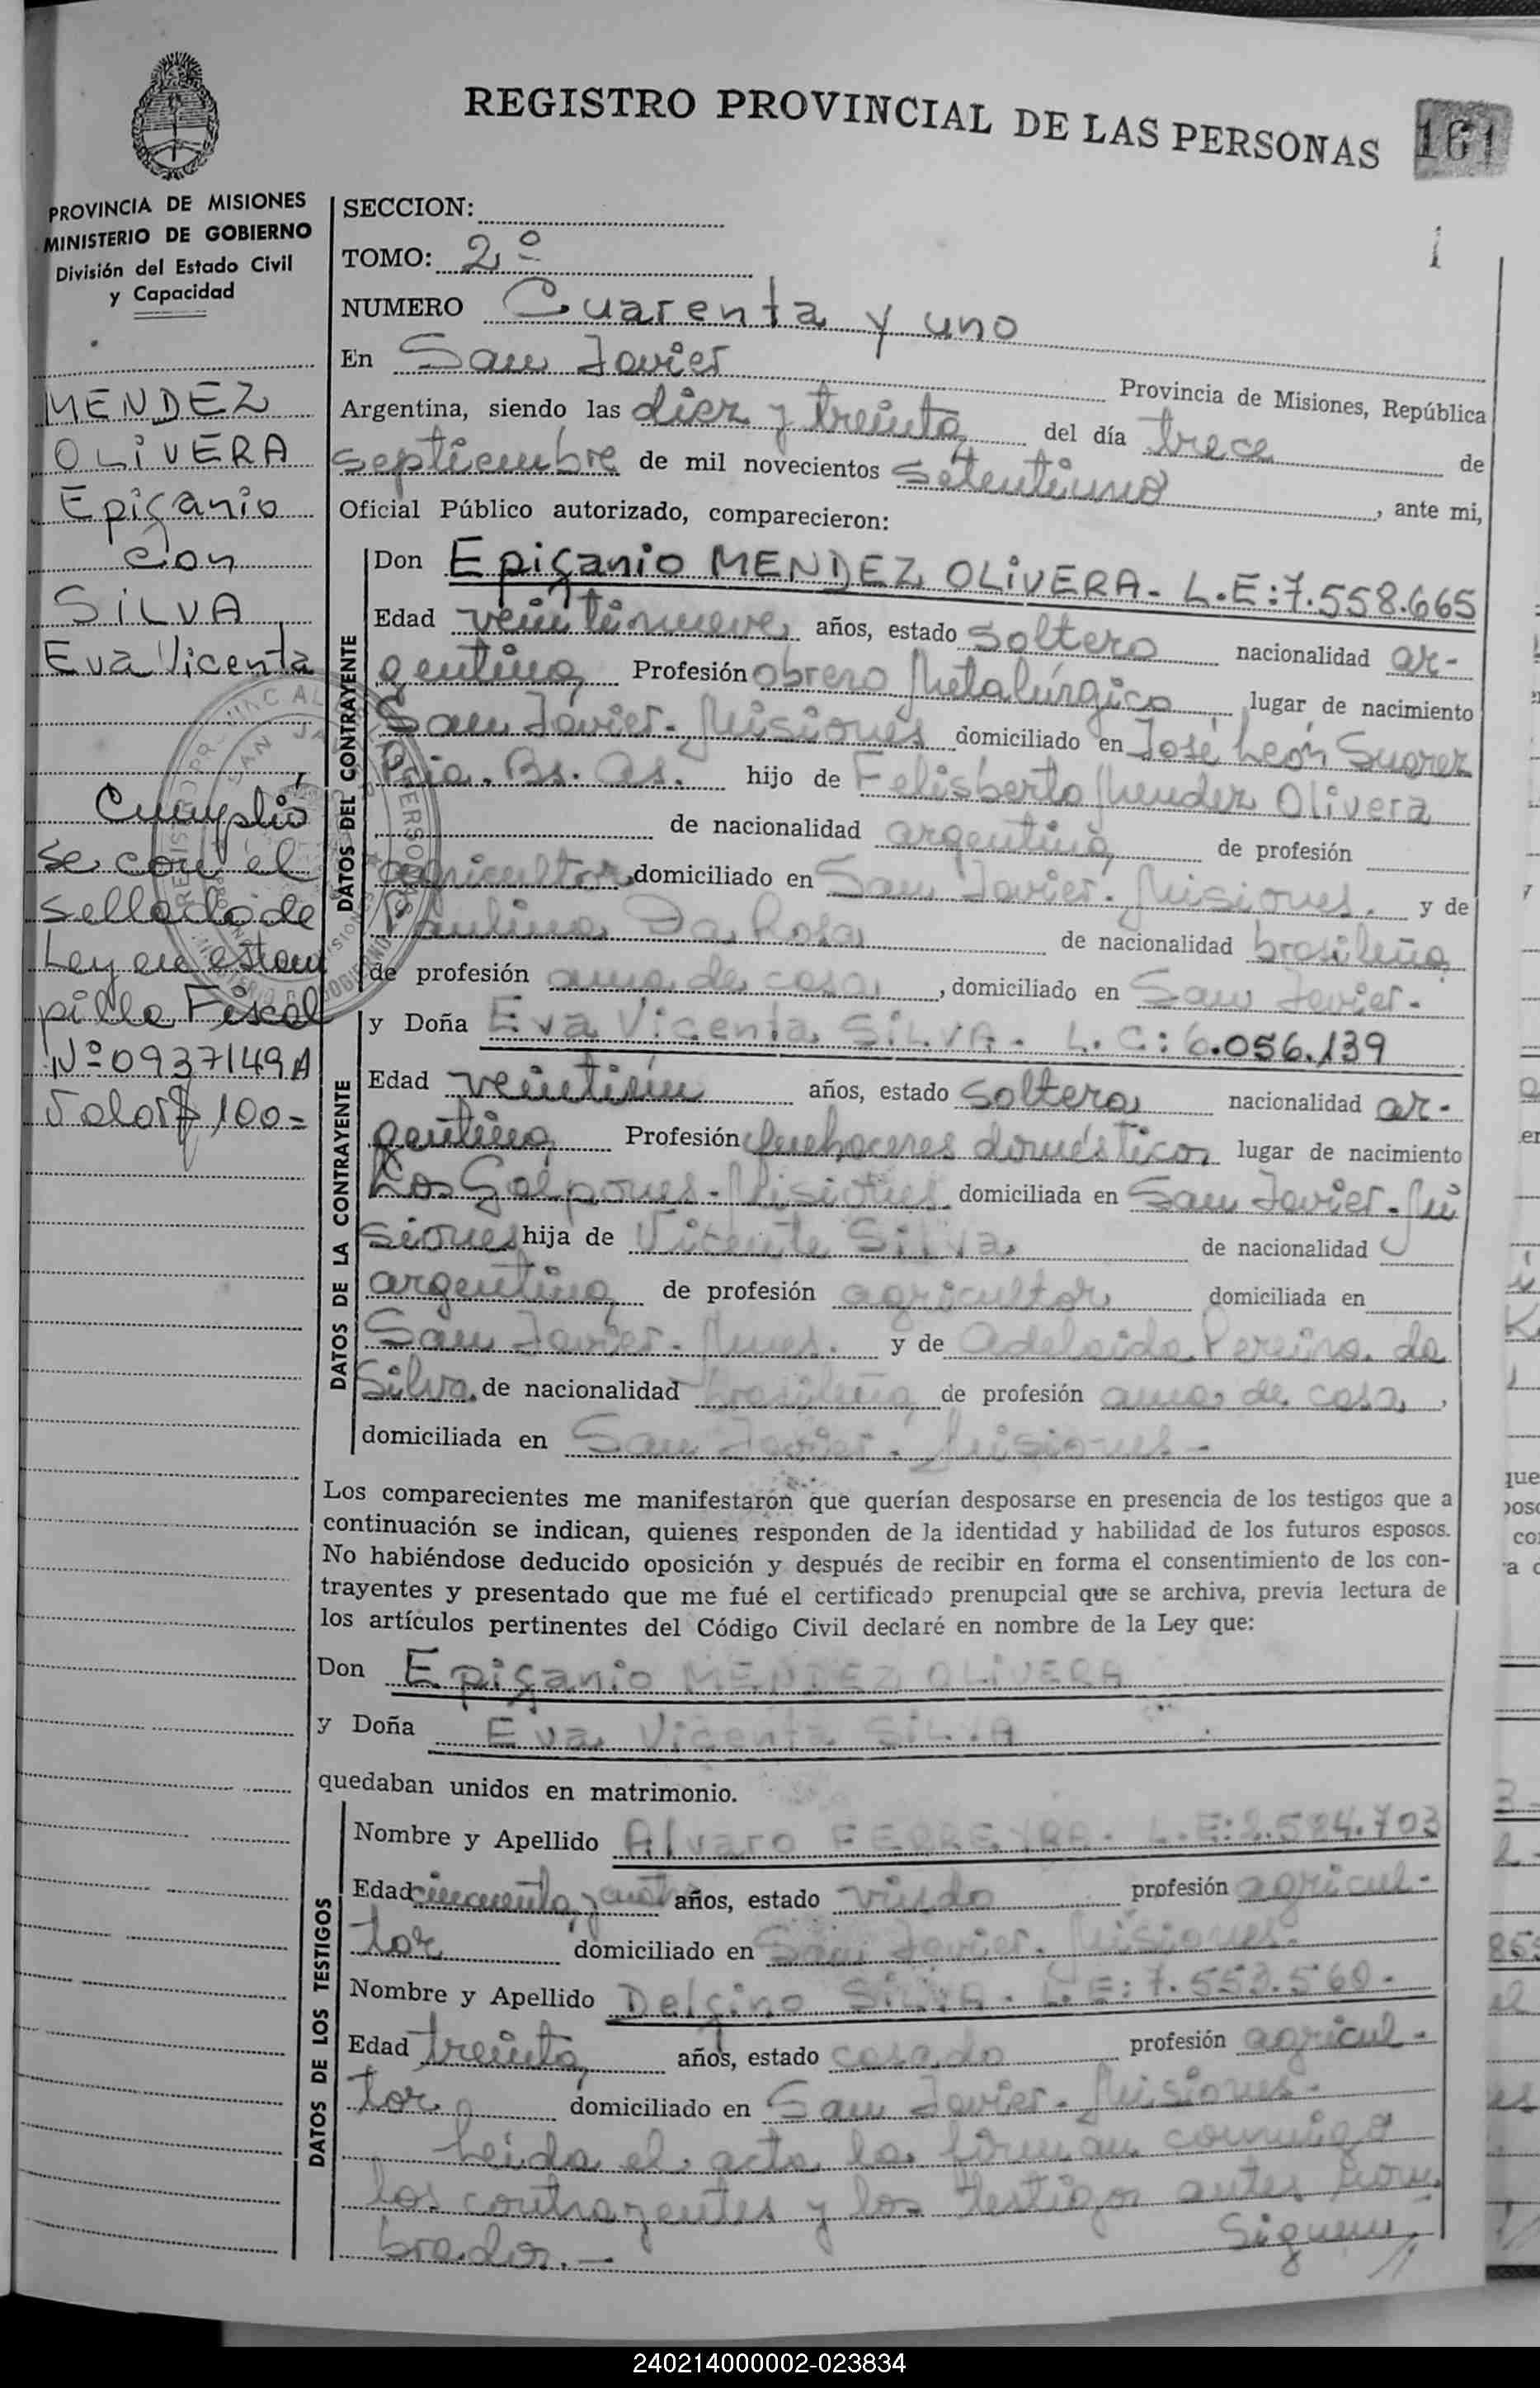 REGISTRO PROVINCIAL DE LAS PERSONAS 161
PROVINCIA DE MISIONES
MINISTERIO DE GOBIERNO
División del Estado Civil
y Capacidad
MENDEZ
OLIVERA
Epifanio
con
SILVA
Eva Vicenta
Cumplió
se con el
sellado de
Ley en estam
pilla Fiscal
Nº 0937149A
Valor $ 100=
SECCION:
TOMO: 2º
NUMERO Cuarenta y uno
En San Javier Provincia de Misiones, República
Argentina, siendo las diez y treinta del día trece de
septiembre de mil novecientos setentiuno, ante mi,
Oficial Público autorizado, comparecieron:
DATOS DEL CONTRAYENTE
Don Epifanio MENDEZ OLIVERA- L.E:7.558.665
Edad veintinueve años, estado soltero nacionalidad ar-
gentina Profesión obrero Metalúrgico lugar de nacimiento
San Javier- Misiones domiciliado en José León Suarez
Pcia. Bs. As. hijo de Felisberto Mendez Olivera
de nacionalidad argentina de profesión
agricultor domiciliado en San Javier- Misiones. y de
Paulina Da Rosa de nacionalidad brasileña
de profesión ama de casa, domiciliado en San Javier-
DATOS DE LA CONTRAYENTE
y Doña Eva Vicenta SILVA- L.C: 6.056.139
Edad veintiún años, estado soltera nacionalidad ar-
gentina Profesión quehaceres domésticos lugar de nacimiento
Los Galpones- Misiones domiciliada en San Javier- Mi
siones hija de Vicente Silva de nacionalidad
argentina de profesión agricultor domiciliada en
San Javier- Mnes. y de Adelaida Pereira da
Silva de nacionalidad brasileña de profesión ama de casa,
domiciliada en San Javier- Misiones-
Los comparecientes me manifestarón que querían desposarse en presencia de los testigos que a
continuación se indican, quienes responden de la identidad y habilidad de los futuros esposos.
No habiéndose deducido oposición y después de recibir en forma el consentimiento de los con-
trayentes y presentado que me fué el certificado prenupcial que se archiva, previa lectura de
los artículos pertinentes del Código Civil declaré en nombre de la Ley que:
Don Epifanio MENDEZ OLIVERA
y Doña Eva Vicenta SILVA
quedaban unidos en matrimonio.
DATOS DE LOS TESTIGOS
Nombre y Apellido Alvaro FERREYRA- L.E:2.584.703
Edad cincuenta y cuatro años, estado viudo profesión agricul-
tor domiciliado en San Javier- Misiones-
Nombre y Apellido Delfino SILVA- L.E: 7.553.560-
Edad treinta años, estado casado profesión agricul-
tor domiciliado en San Javier- Misiones-
Leida el acta la firman conmigo
los contrayentes y los testigos antes nom
brados.— Siguen
240214000002-023834